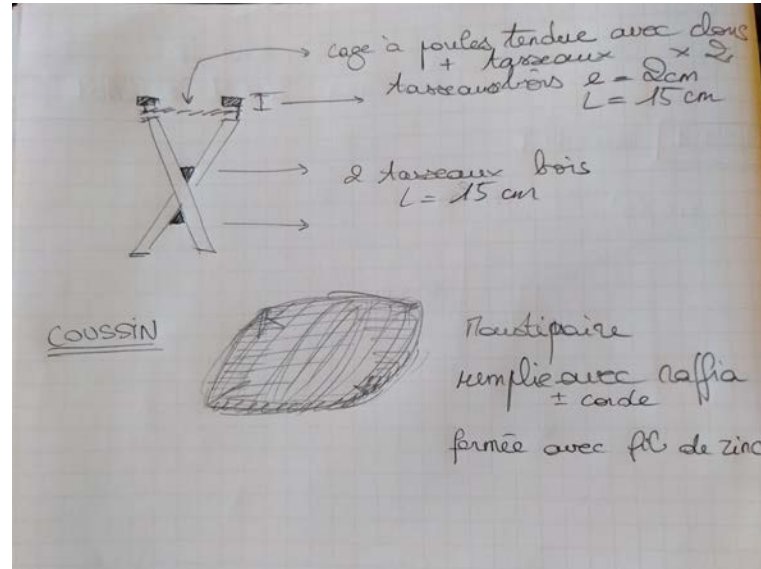 cage à poules tendue avec clous
+ tasseaux x 2
tasseaux bois e = 2cm
L = 15 cm
2 tasseaux bois
L = 15 cm
COUSSIN
Moustiquaire
remplie avec raffia
± corde
fermée avec fil de zinc